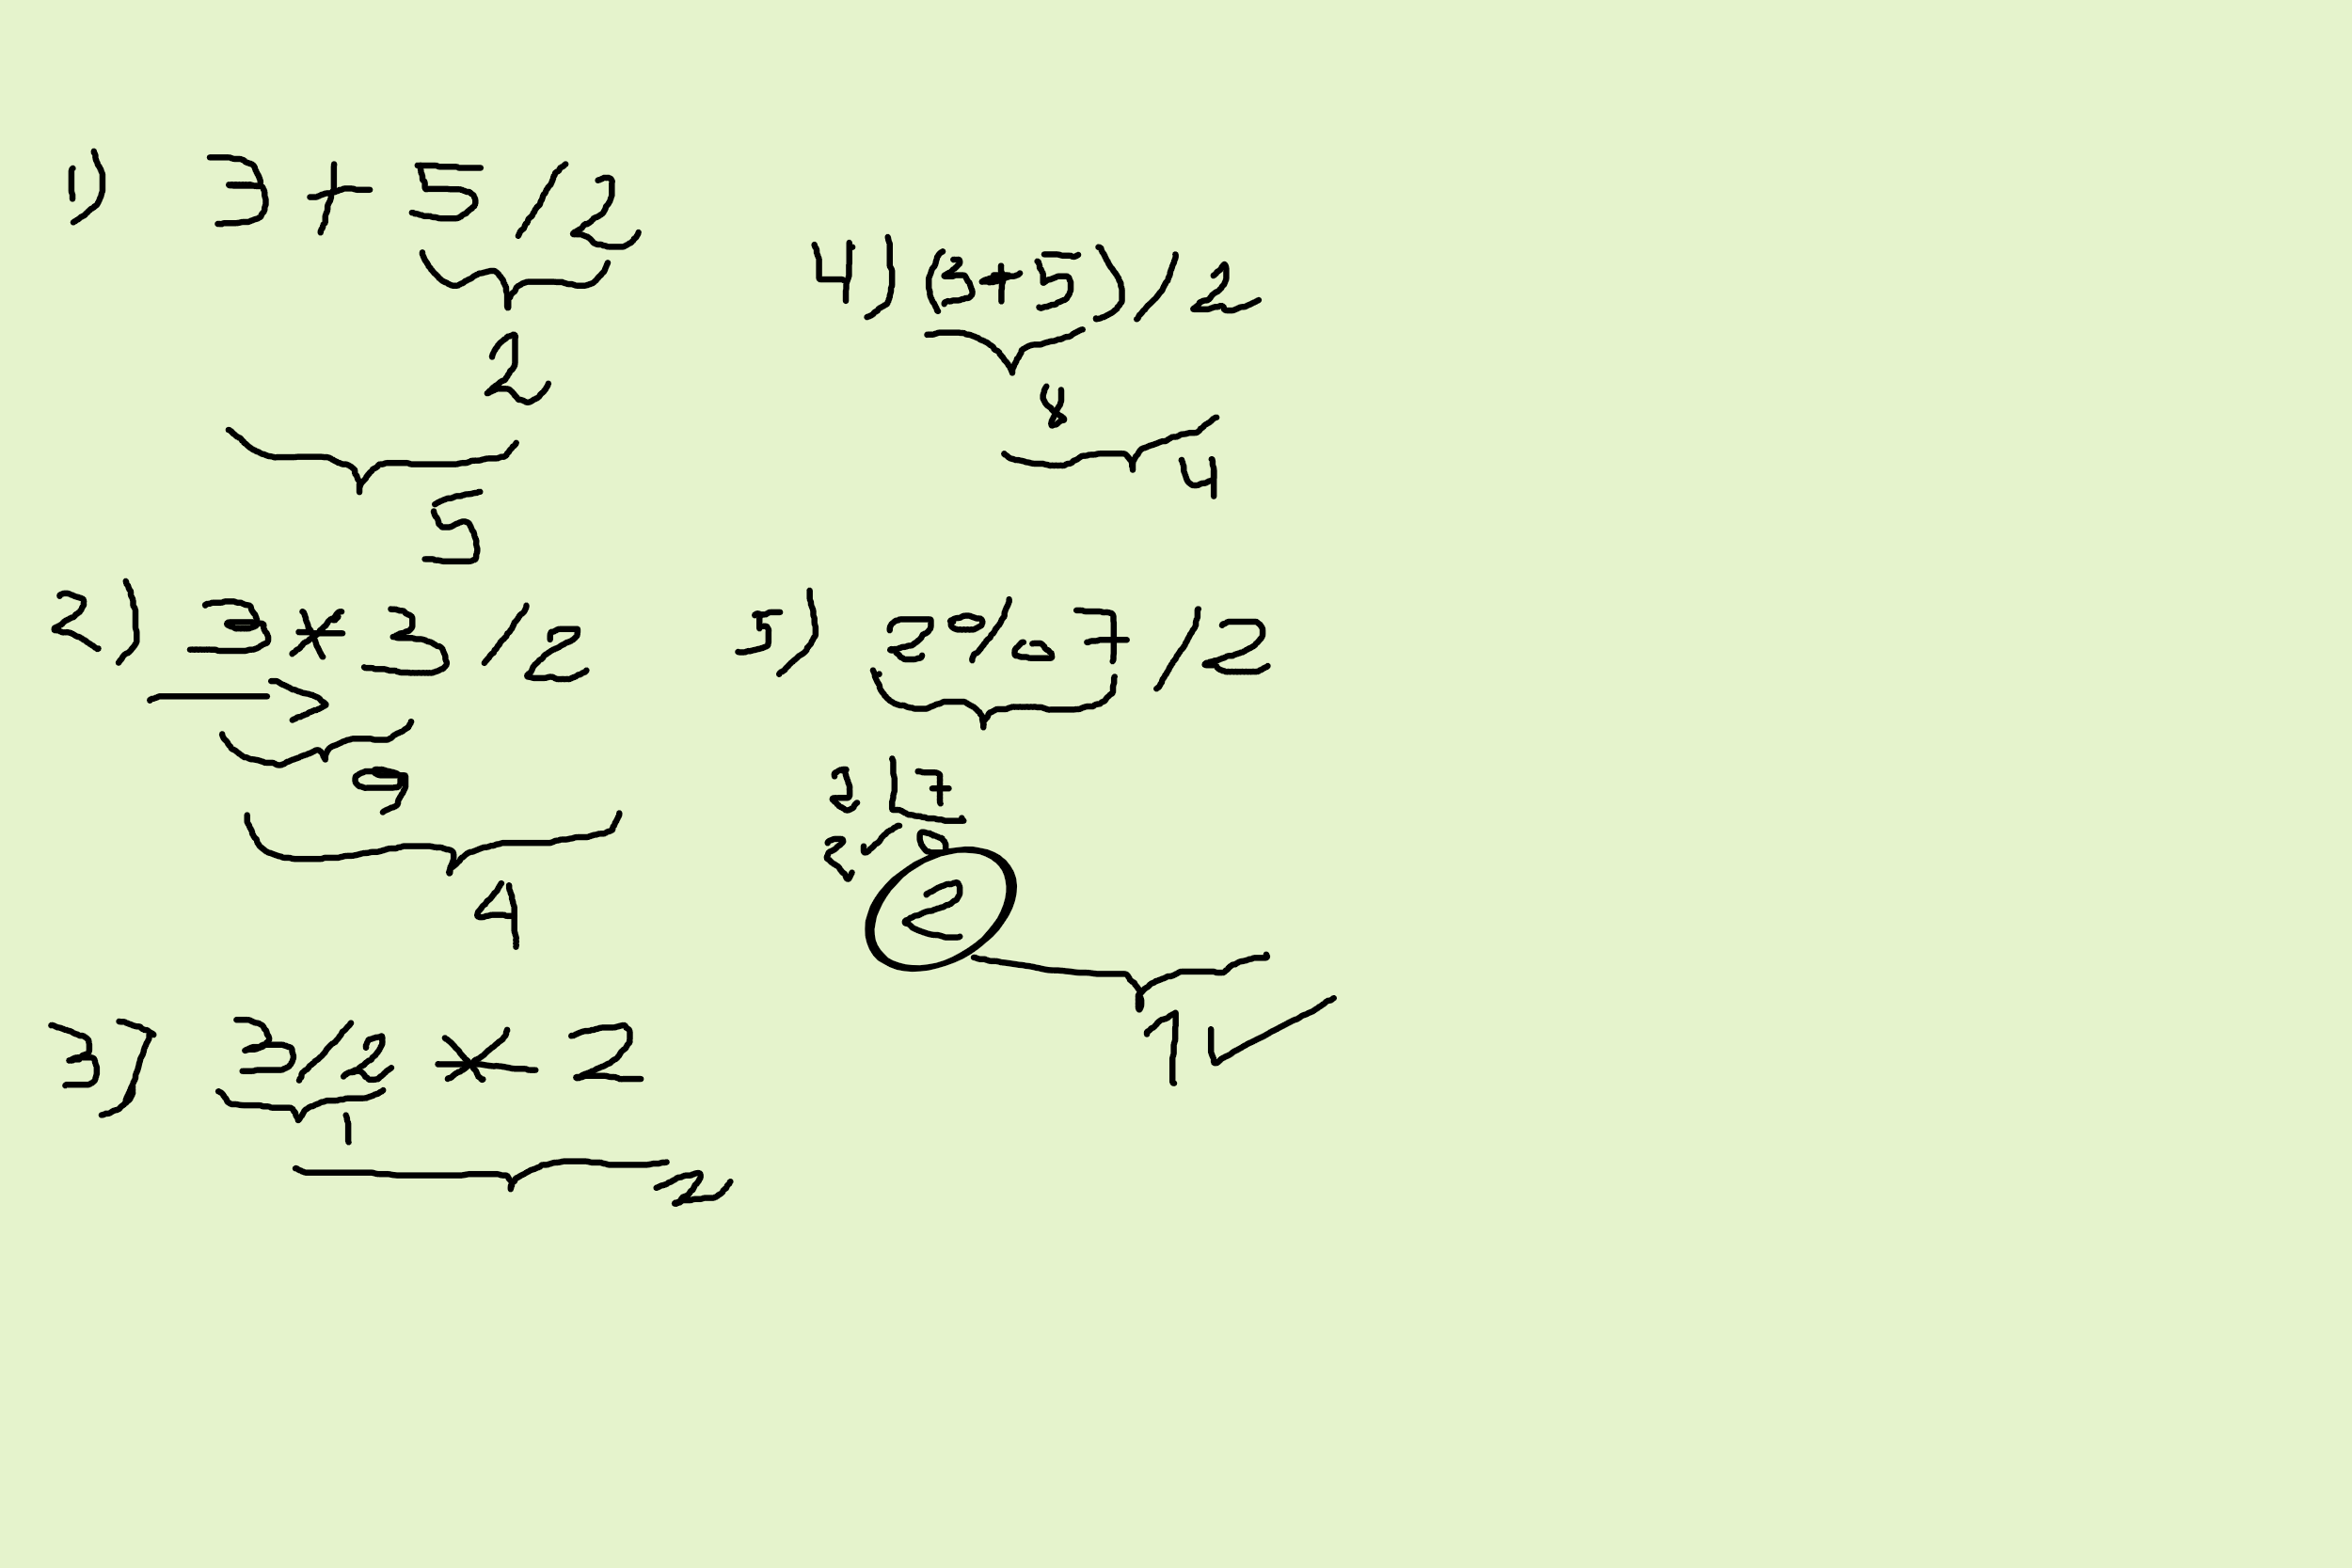 1) 3 + 5 / 2
2
5
2) 3 * 3 / 2
9
4
3) 3/2 * 2
1
2
4) (3+5) / 2
8
4
5) 2 % 7 / 2
2 7
2 0
2
1